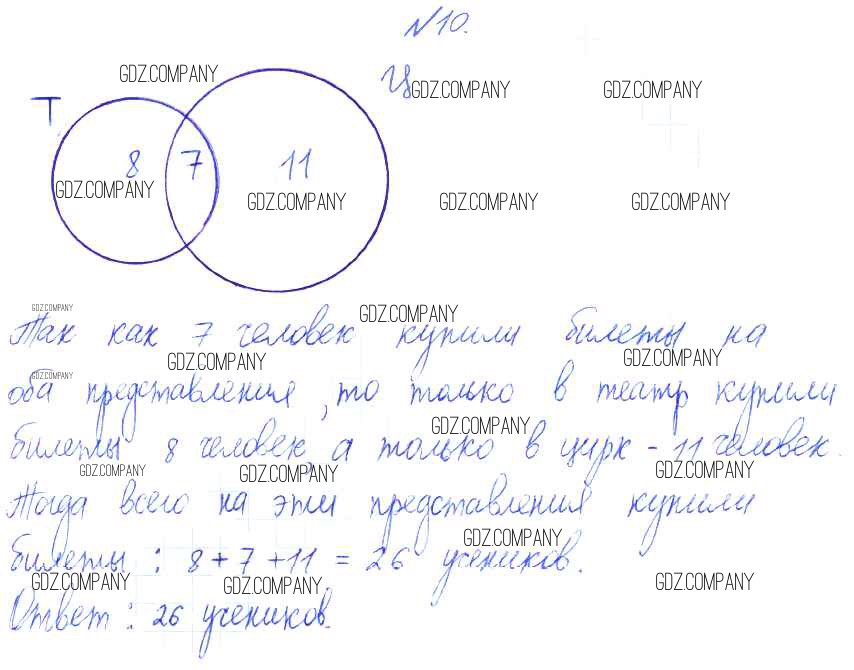 №10.
GDZ.COMPANY
Ц
GDZ.COMPANY
GDZ.COMPANY
Т
8 7 11
GDZ.COMPANY
GDZ.COMPANY
GDZ.COMPANY
GDZ.COMPANY
GDZ.COMPANY
GDZ.COMPANY
Так как 7 человек купили билеты на
GDZ.COMPANY
GDZ.COMPANY
GDZ.COMPANY
оба представления, то только в театр купили
GDZ.COMPANY
билеты 8 человек, а только в цирк - 11 человек.
GDZ.COMPANY
GDZ.COMPANY
GDZ.COMPANY
Тогда всего на эти представления купили
GDZ.COMPANY
билеты : 8 + 7 + 11 = 26 учеников.
GDZ.COMPANY
GDZ.COMPANY
GDZ.COMPANY
Ответ : 26 учеников.